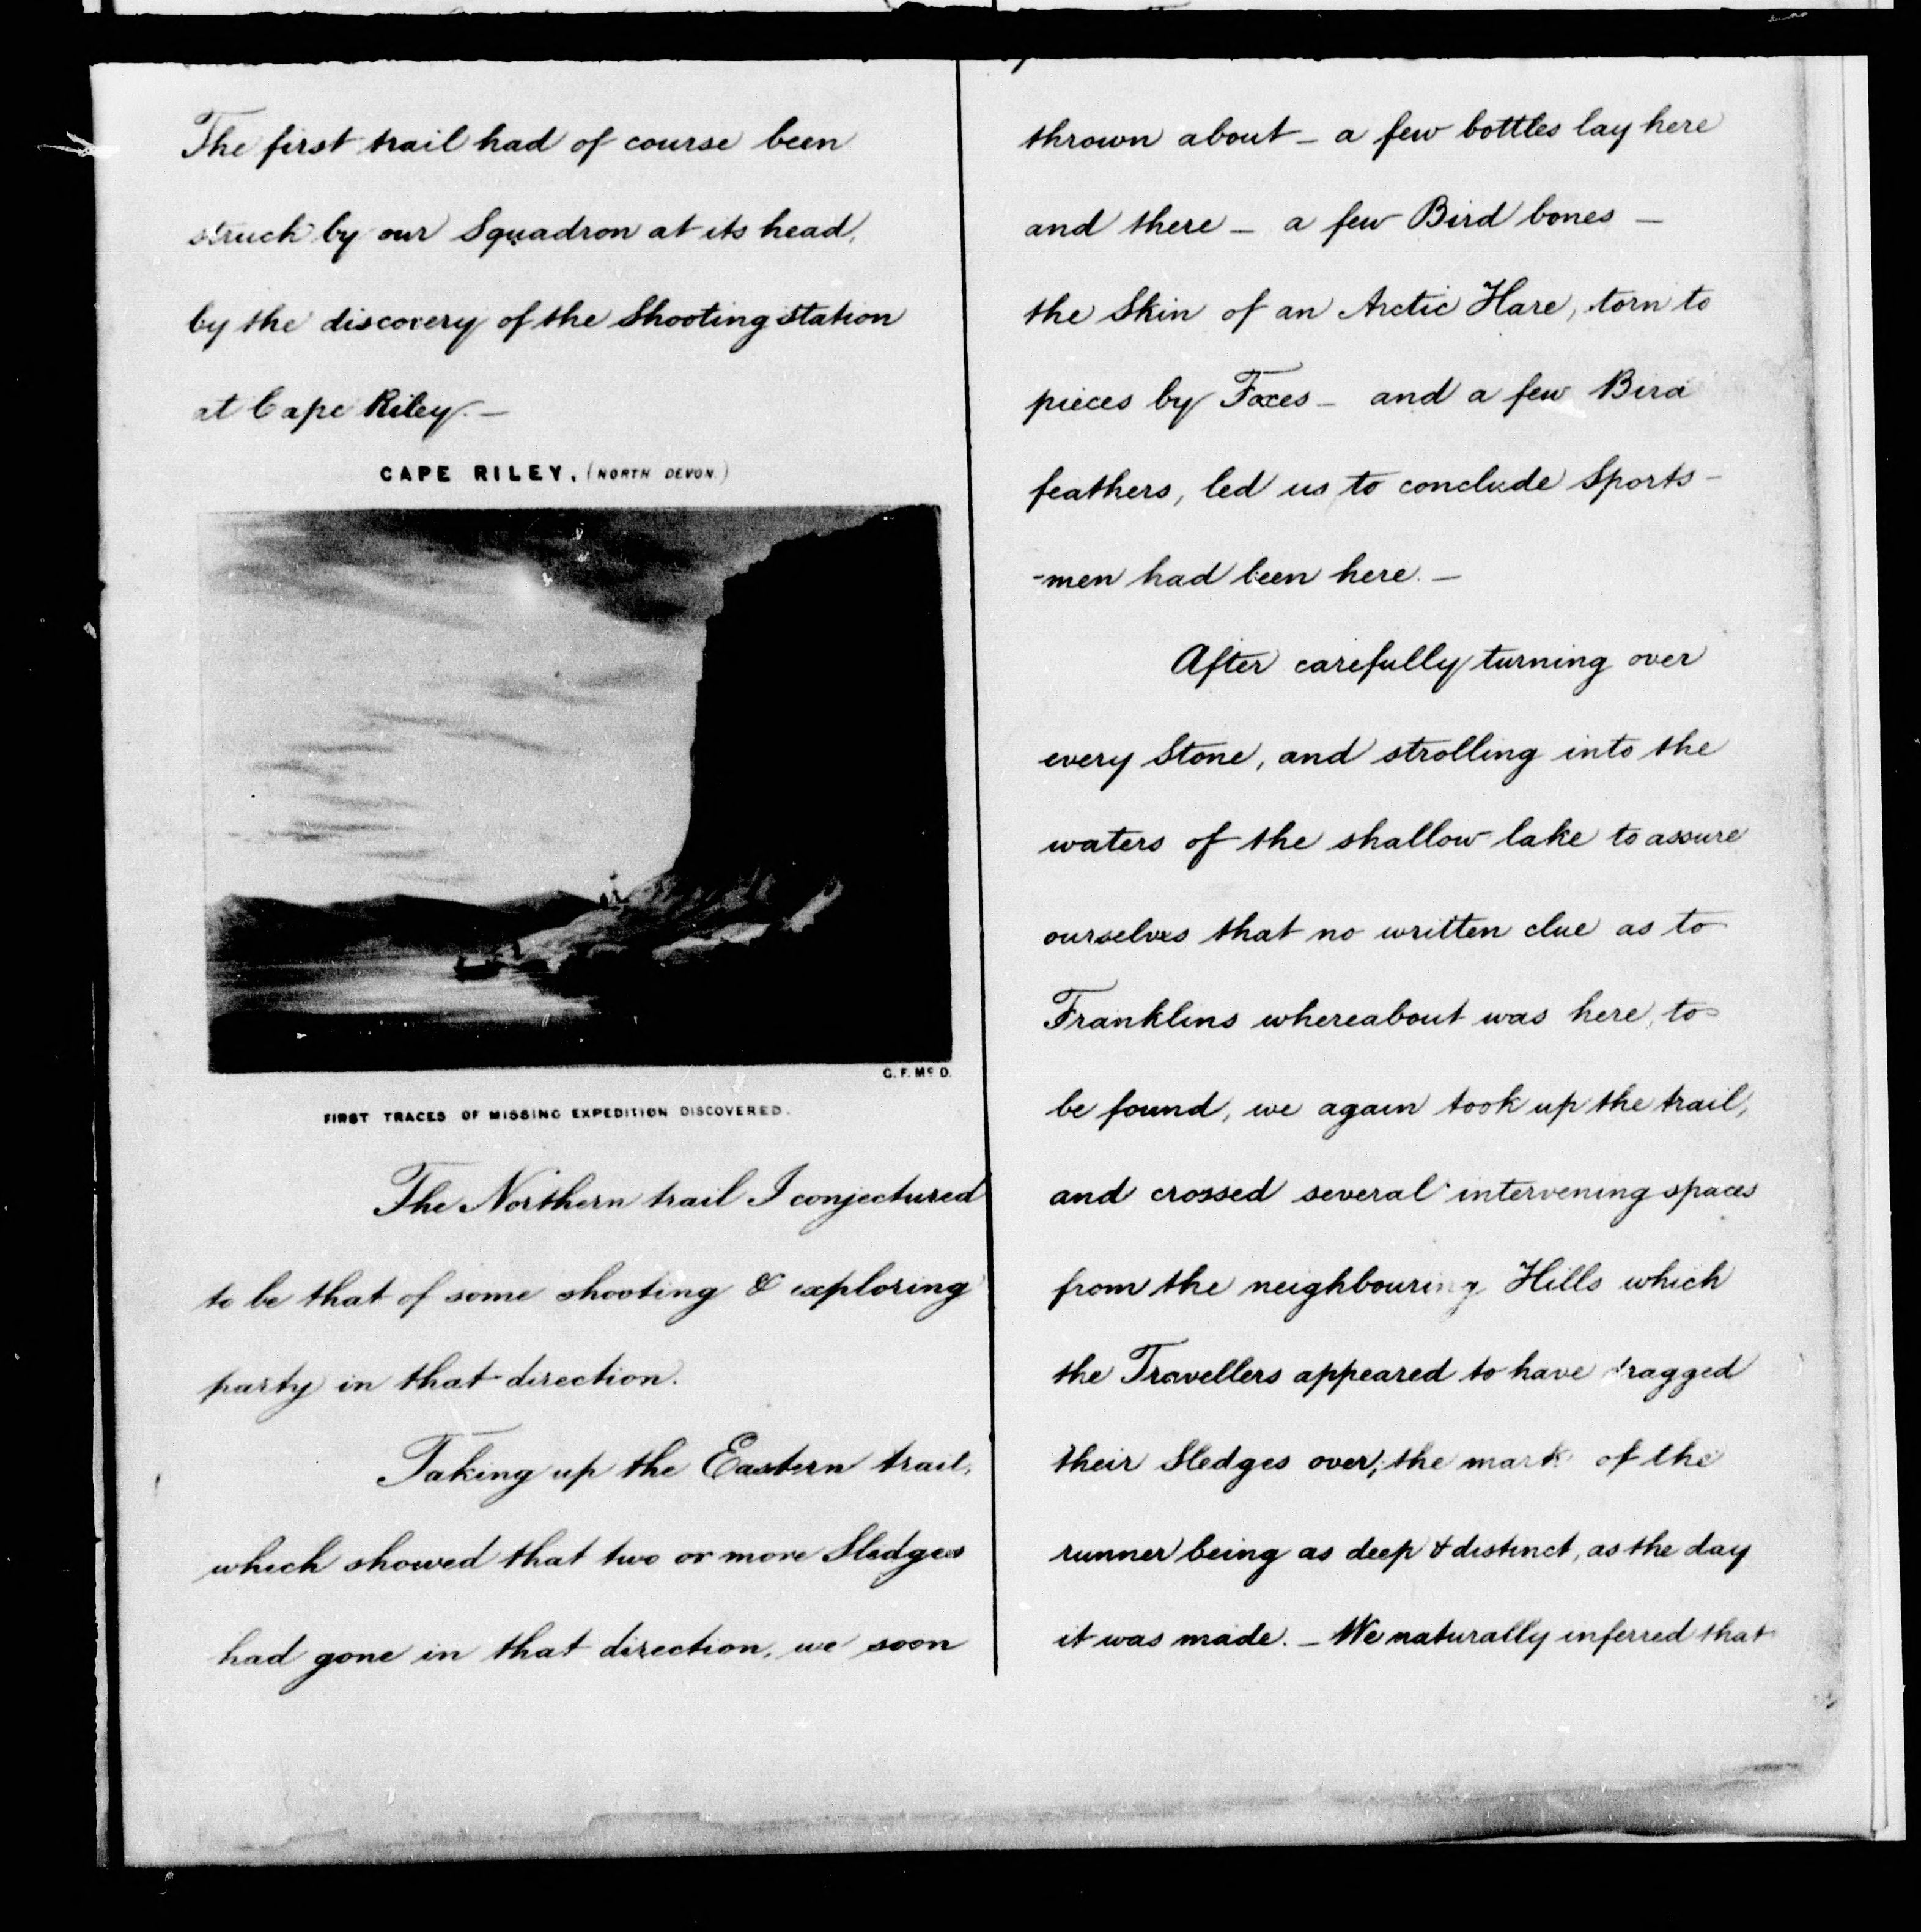 The first trail had of course been
struck by our Squadron at its head,
by the discovery of the Shooting Station
at Cape Riley. —
CAPE RILEY, (NORTH DEVON)
G. F. Mc D.
FIRST TRACES OF MISSING EXPEDITION DISCOVERED.
The Northern trail I conjectured
to be that of some shooting & exploring
party in that direction.
Taking up the Eastern trail,
which showed that two or more Sledges
had gone in that direction, we soon
thrown about — a few bottles lay here
and there — a few Bird bones —
the Skin of an Arctic Hare, torn to
pieces by Foxes — and a few Bird
feathers, led us to conclude Sports-
-men had been here. —
After carefully turning over
every Stone, and strolling into the
waters of the shallow lake to assure
ourselves that no written clue as to
Franklins whereabout was here, to
be found, we again took up the trail,
and crossed several intervening spaces
from the neighbouring Hills which
the Travellers appeared to have dragged
their Sledges over; the mark of the
runner being as deep & distinct, as the day
it was made. — We naturally inferred that